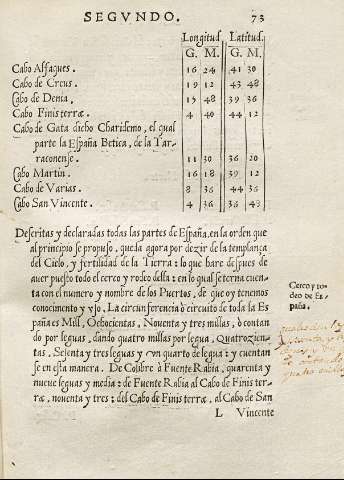 SEGVNDO. 73
Longitud Latitud.
G. M. G. M.
Cabo Alfaques. 16 24 41 30
Cabo de Creus. 19 12 43 48
Cabo de Denia. 17 48 39 36
Cabo Finisterræ. 4 40 44 12
Cabo de Gata dicho Charidemo, el qual
parte la España Betica, de la Tar-
raconense. 11 30 36 20
Cabo Martin. 16 18 39 12
Cabo de Varias. 8 36 44 36
Cabo San Vincente. 4 36 36
Descritas y declaradas todas las partes de España, en la orden que
al principio se propuso, queda agora por dezir de la templança
del Cielo, y fertilidad de la Tierra: lo que hare despues de
auer puesto todo el cerco y rodeo della: en lo qual se terna cuen-
ta con el numero y nombre de los Puertos, de que oy tenemos
conocimento y vso. La circunferencia ò circuito de toda la Es
paña es Mill, Ochocientas, Nouenta y tres millas, ò contan
do por leguas, dando quatro millas por legua, Quatrozien-
tas, Setenta y tres leguas y vn quarto de legua: y cuentan
se en esta manera. De Colibre à Fuente Rabia, quarenta y
nueue leguas y media: de Fuente Rabia al Cabo de Finis ter
ræ, nouenta y tres: del Cabo de Finis terræ, al Cabo de San
L Vincente
Cerco y ro-
deo de Es-
paña.